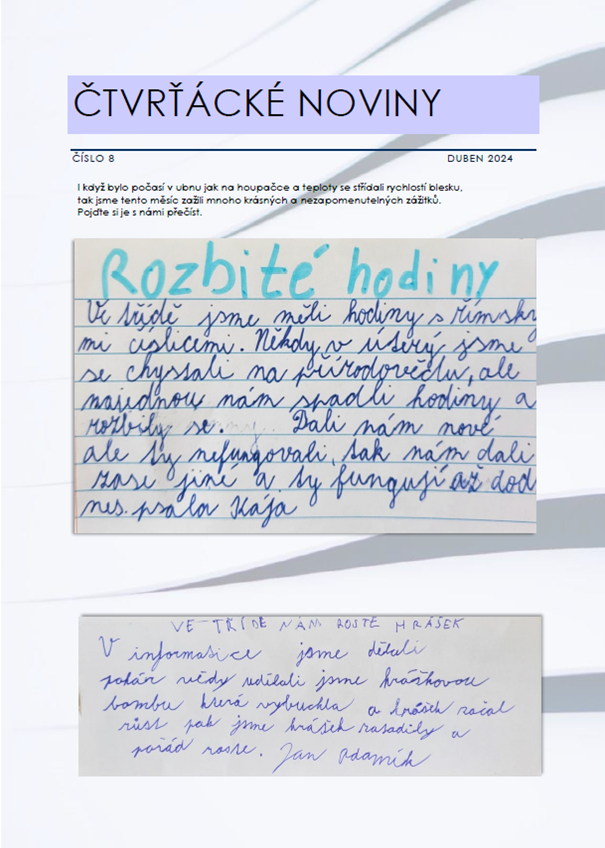 ČTVRŤÁCKÉ NOVINY
ČÍSLO 8 DUBEN 2024
I když bylo počasí v ubnu jak na houpačce a teploty se střídali rychlostí blesku,
tak jsme tento měsíc zažili mnoho krásných a nezapomenutelných zážitků.
Pojďte si je s námi přečíst.
Rozbité hodiny
Ve třídě jsme měli hodiny s římsky
mi číslicími. Někdy v úterý jsme
se chystali na přírodovědu, ale
najednou nám spadli hodiny a
rozbily se. Dali nám nové
ale ty nefungovali, tak nám dali
zase jiné a ty fungují až dod
nes. psala Kája
VE TŘÍDĚ NÁM ROSTE HRÁŠEK
V informatice jsme dělali
pokus vědy udělali jsme hráškovou
bombu která vybuchla a hrášek začal
růst pak jsme hrášek zasadily a
pořád roste. Jan Adamík